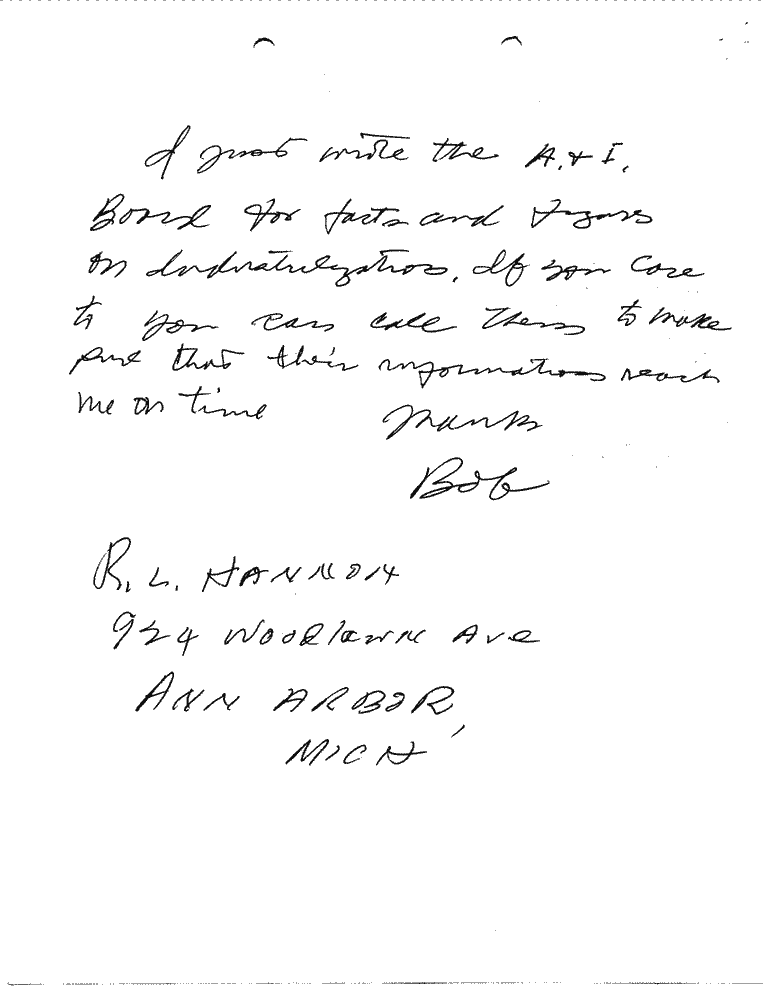 I just wrote the A. & I.
Board for facts and figures
on Industrialization. If you care
to you can call them to make
sure that their information reach
me on time
Thanks
Bob
R. L. HANNON
924 Woodlawn Ave
ANN ARBOR,
MICH